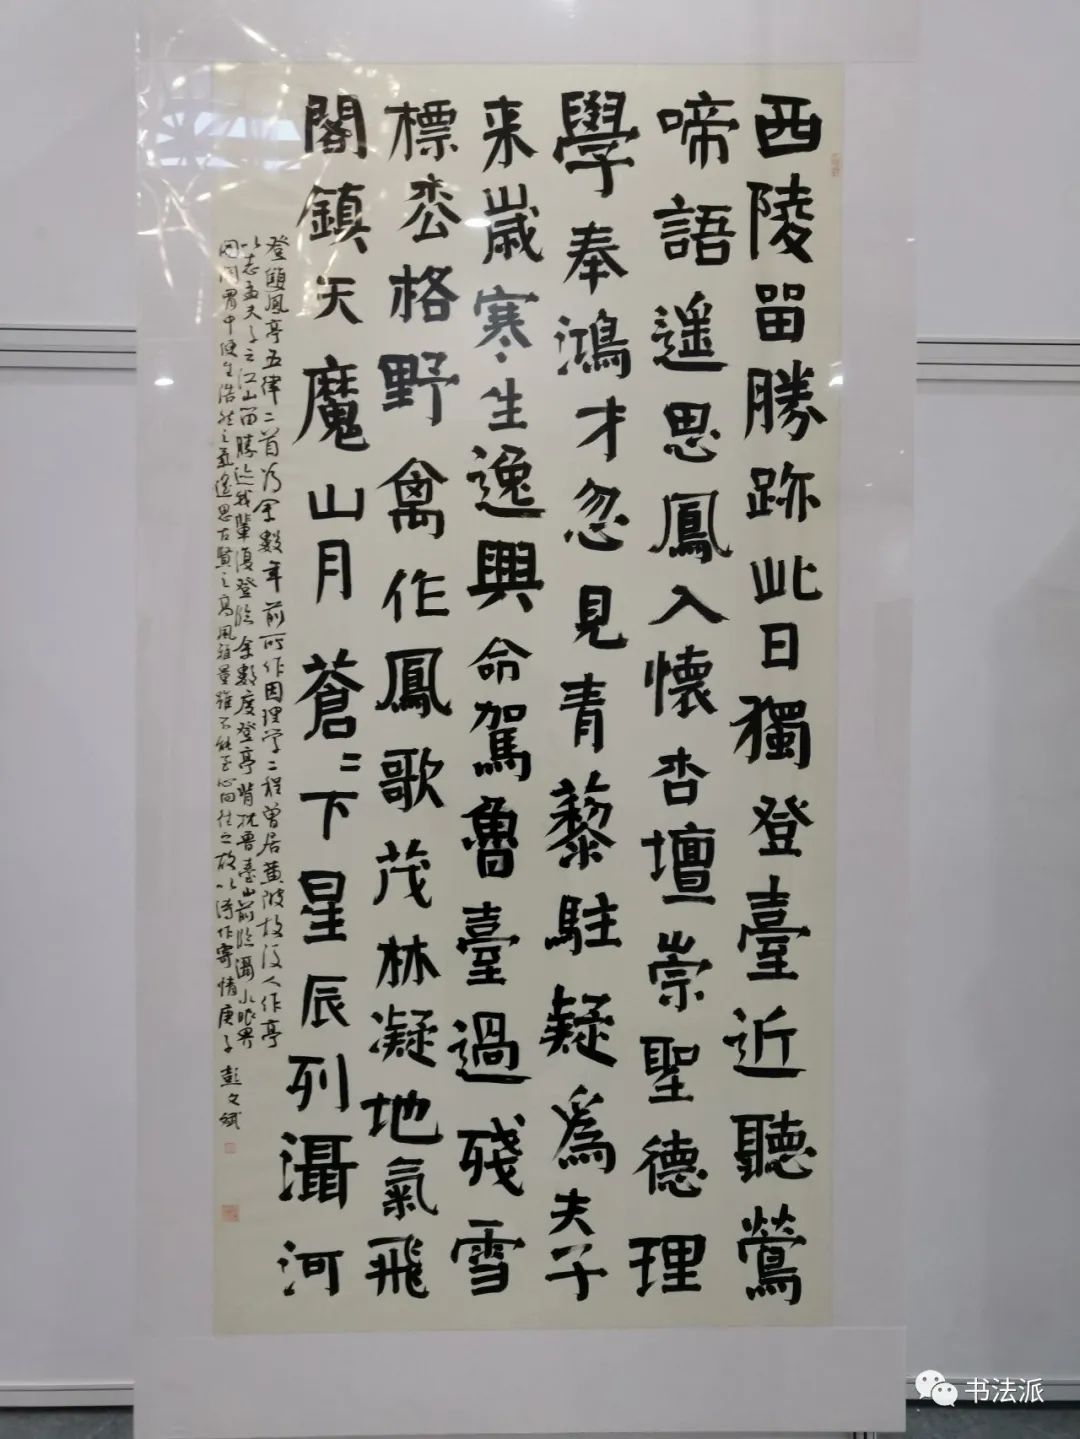 西陵留勝跡此日獨登臺近聽鶯
啼語遥思鳳入懷杏壇崇聖德理
學奉鴻才忽見青藜駐疑爲夫子
来歲寒生逸興命駕魯臺過殘雪
標松格野禽作鳳歌茂林凝地氣飛
閣鎮天魔山月蒼〻下星辰列灄河
登顧鳳亭五律二首乃余數年前所作因理学二程曾居黄陂故後人作亭
以志孟夫子云江山留勝迹我輩復登臨余數度登亭背枕魯臺山前臨灄水眼界
開闊胃中便生浩然之氣遥思古賢之高風雅量雖不能至心向往之故以詩作寄情庚子 彭文斌
书法派